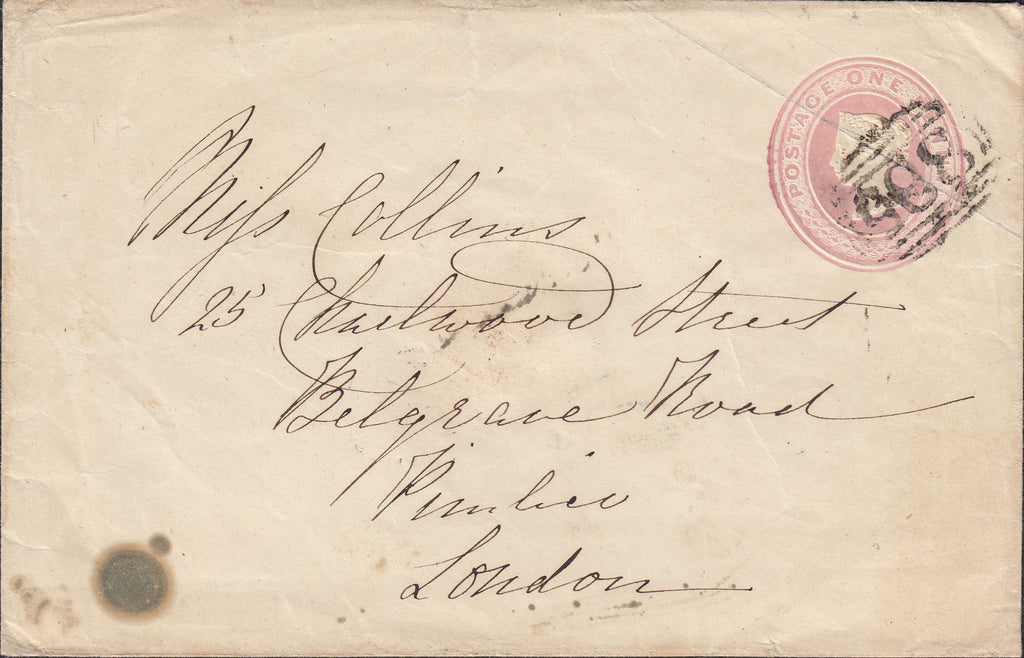 POSTAGE ONE
Miss Collins
25 Charlwood Street
Belgrave Road
Pimlico
London